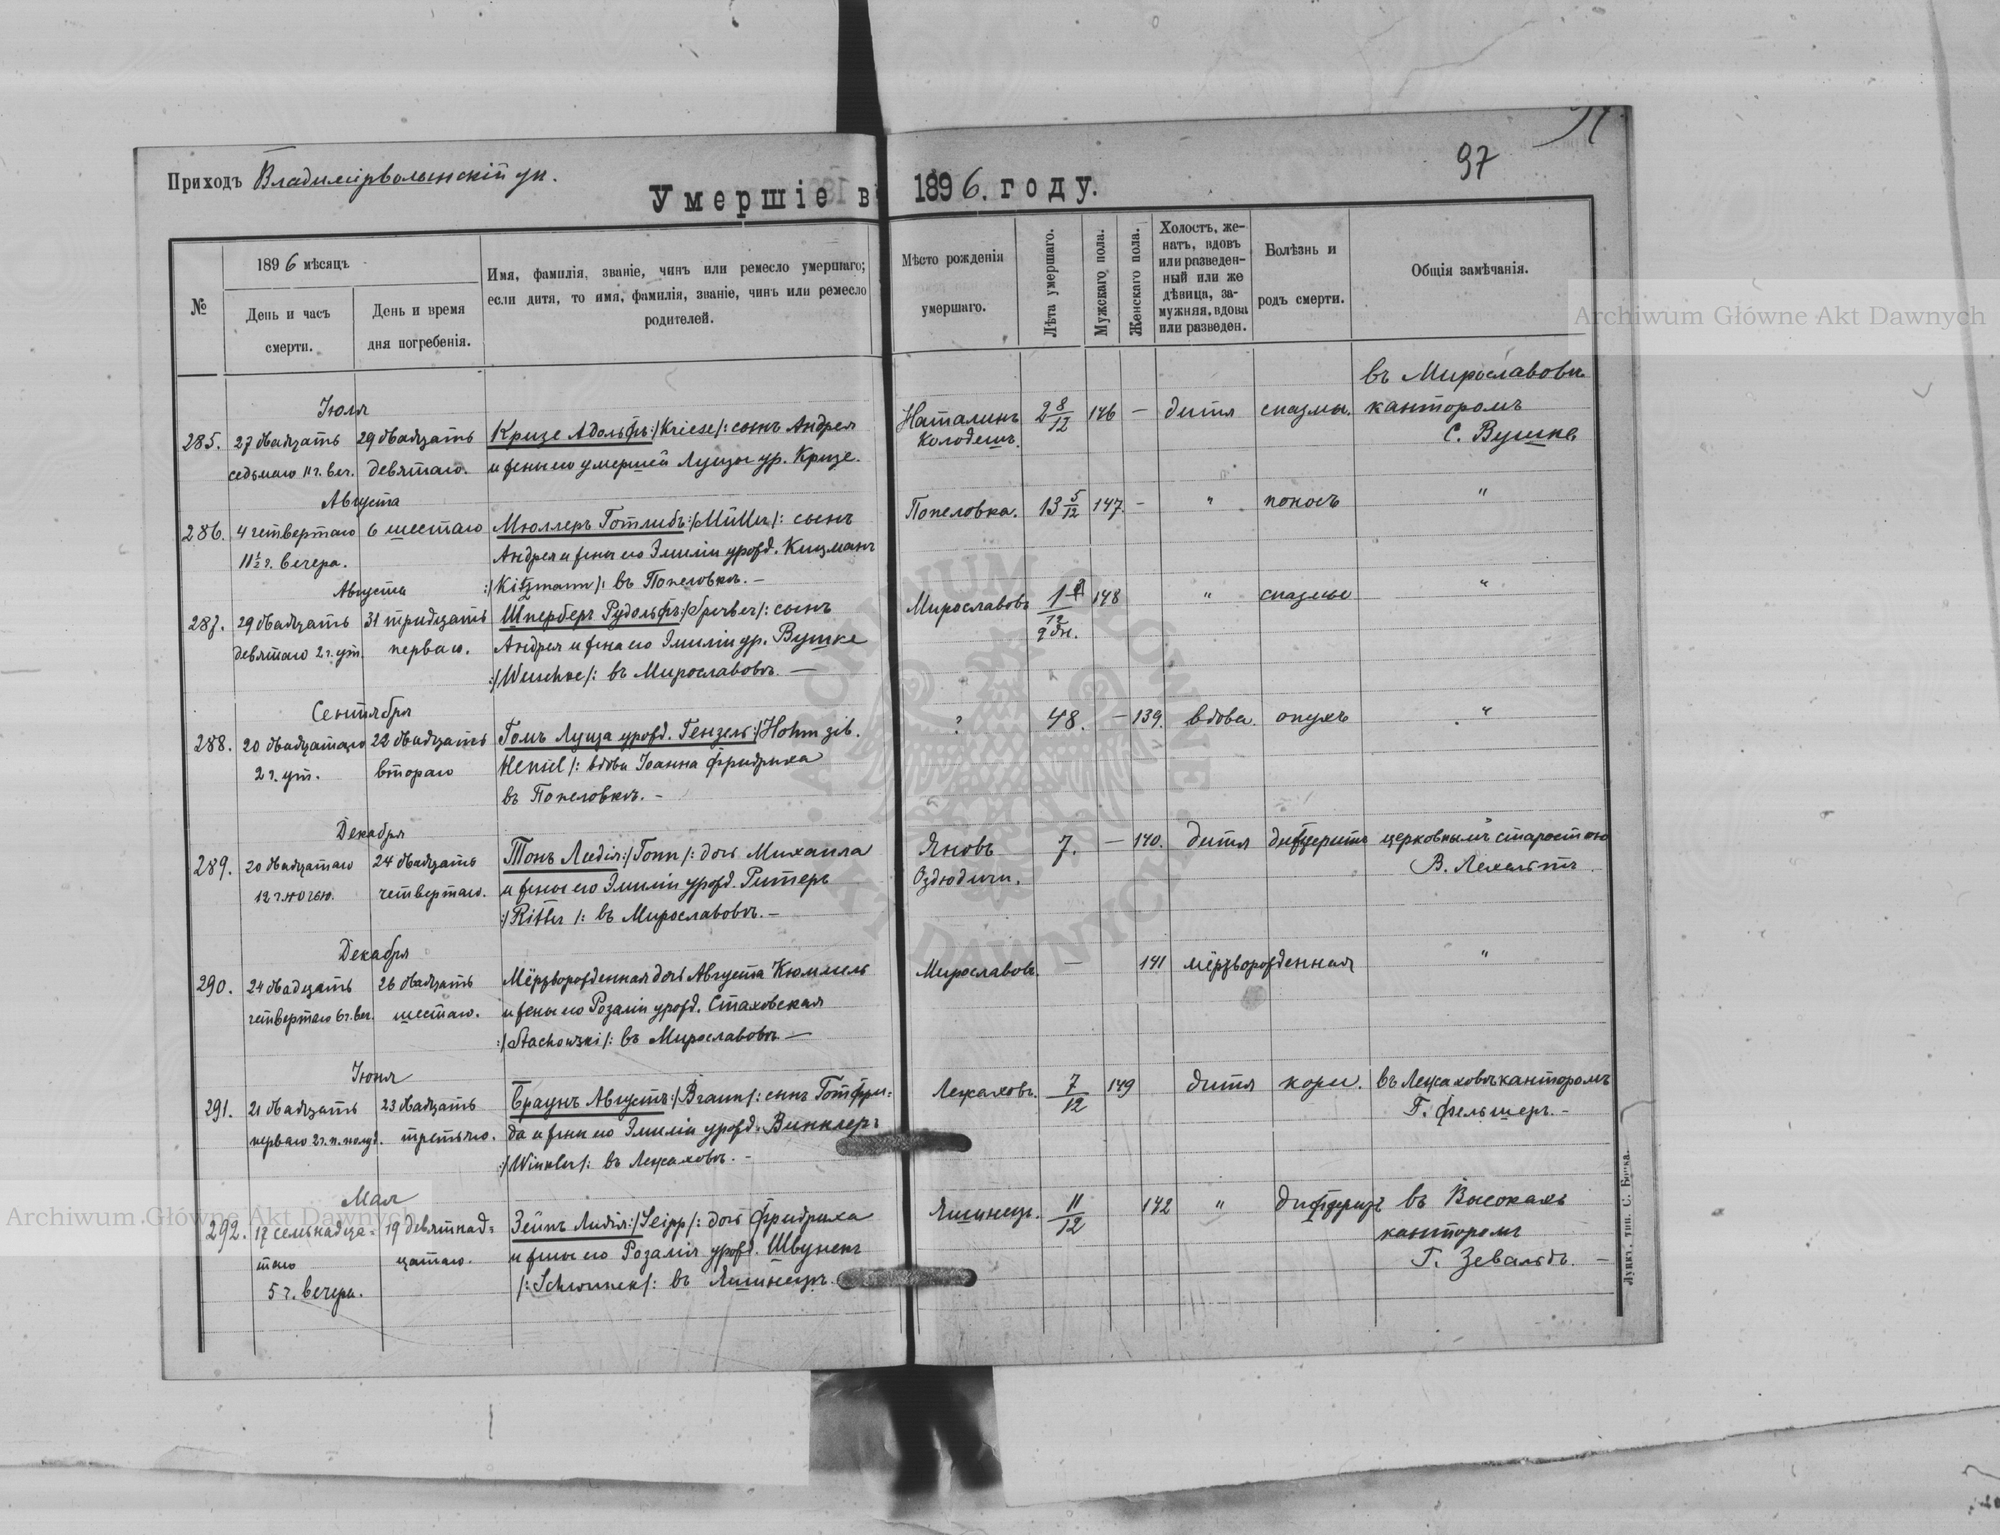 97
Приходъ Владимірволынскій уѣ.
Умершіе въ 1896. году.
№
1896 мѣсяцъ
День и часъ смерти.
День и время дня погребенія.
Имя, фамилія, званіе, чинъ или ремесло умершаго;
если дитя, то имя, фамилія, званіе, чинъ или ремесло
родителей.
Мѣсто рожденія
умершаго.
Лѣта умершаго.
Мужскаго пола.
Женскаго пола.
Холостъ, же-
натъ, вдовъ
или разведен-
ный или же
дѣвица, за-
мужняя, вдова
или разведен.
Болѣзнь и
родъ смерти.
Общія замѣчанія.
Archiwum Główne Akt Dawnych
въ Мирославовкѣ
Іюля
285. 27 двадцать 29 двадцать Кризе Адольфъ :/Kriese/: сынъ Андрея Наталинъ 2 8/12 146 — дитя спазмы. канторомъ
седьмаго 11 ч. веч. девятаго. и жены его умершей Луизы ур. Кризе. Колодеш. С. Вушке
Августа
286. 4 четвертаго 6 шестаго Мюллеръ Готлибъ :/Müller/: сынъ Попеловка. 13 5/12 147. — " поносъ "
11½ ч. вечера. Андрея и жены его Эмиліи урожд. Кицманъ
Августа :/Kitzmann/: въ Попеловкѣ. —
287. 29 двадцать 31 тридцать Шперберъ Рудольфъ :/Sperber/: сынъ Мирославовк. 148 " спазмы "
девятаго 2 ч. ут. перваго. Андрея и жены его Эмиліи ур. Вушке 9 дн.
:/Wuschke/: въ Мирославовкѣ. —
Сентября
288. 20 двадцатаго 22 двадцать Гомъ Луиза урожд. Гензель :/Hohm geb. ? 48. — 139. вдова опухъ "
2 ч. ут. втораго Hensel/: вдова Іоанна Фридриха
въ Попеловкѣ. —
Декабря
289. 20 двадцатаго 24 двадцать Тонъ Лидія :/Tonn/: дочь Михаила Яновъ 7. — 140. дитя дифтеритъ церковнымъ старостою
12 ч. ночью. четвертаго. и жены его Эмиліи урожд. Ритеръ Оздюдичи. В. Лехельтъ.
:/Ritter/: въ Мирославовкѣ. —
Декабря
290. 24 двадцать 26 двадцать Мёртворожденная дочь Августа Кюммель Мирославовк. — 141 мёртворожденная "
четвертаго 6 ч. веч. шестаго. и жены его Розаліи урожд. Стаховская
:/Stachowski/: въ Мирославовкѣ —
Іюня
291. 21 двадцать 23 двадцать Браунъ Августъ :/Braun/: сынъ Готфри= Лежаховъ. 7/12 149 дитя кори. въ Лежаховѣ канторомъ
перваго 2 ч. п. полуд. третьяго. да и жены его Эмиліи урожд. Винклеръ Г. Фельшеръ. —
:/Winkler/: въ Лежаховѣ. —
Мая
292. 17 семьнадца= 19 девятнад= Зейпъ Лидія :/Seipp/: дочь Фридриха Яшинецъ. 11/12 142 " дифтеритъ въ Высокахъ
таго цатаго. и жены его Розаліи урожд. Швунекъ канторомъ
5 ч. вечера. /:Schwunek/: въ Яшинецѣ. Г. Зевальдъ. —
Луцкъ, тип. С. Бо
Archiwum Główne Akt Dawnych
ARCHIWUM GŁÓWNE AKT DAWNYCH